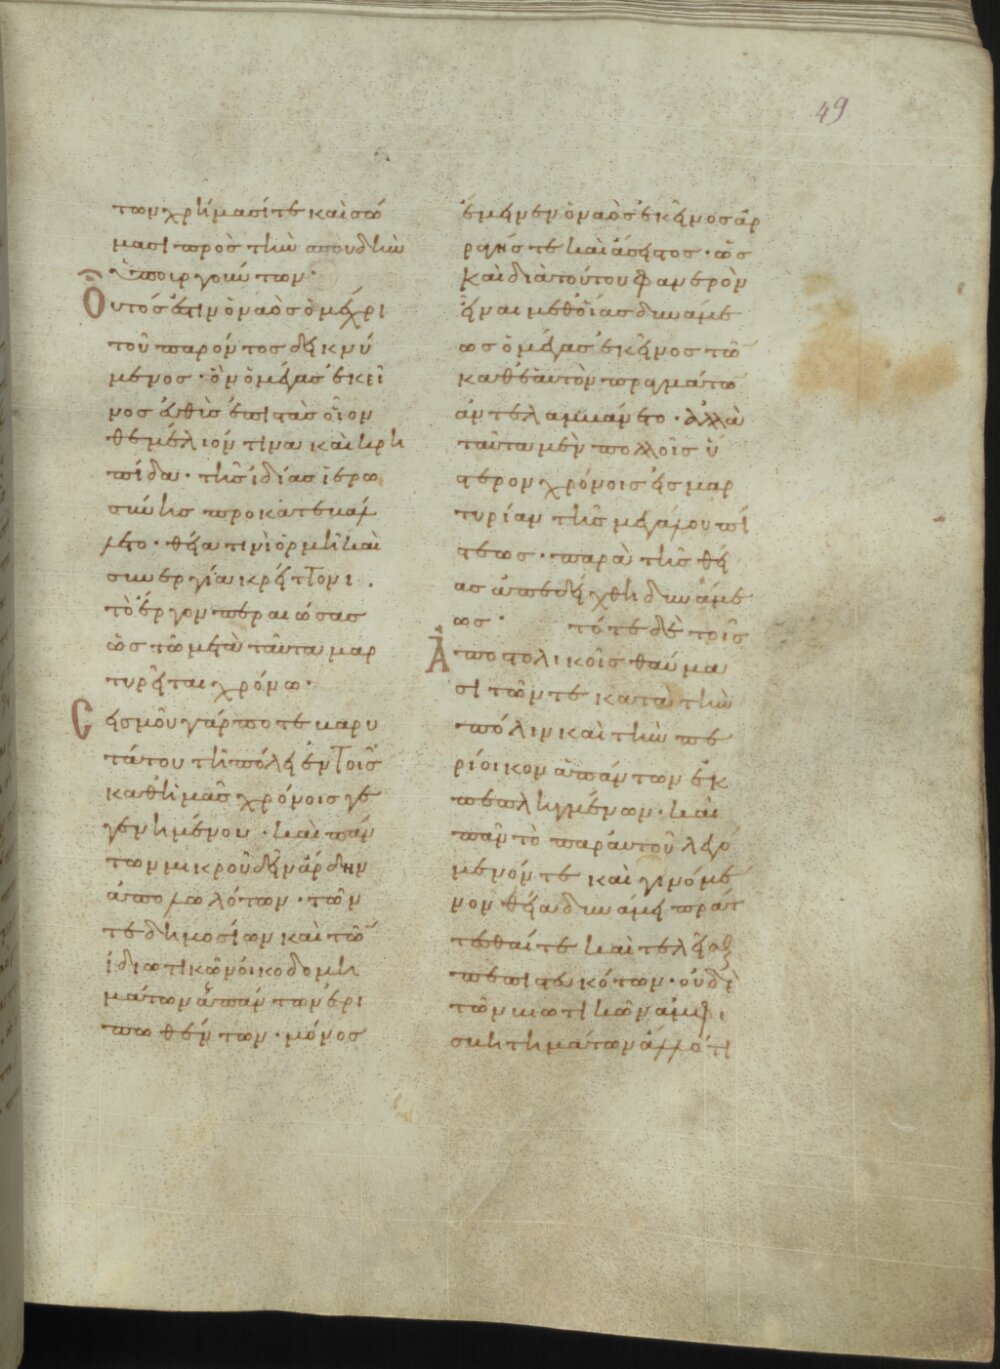 49
των χρήμασί τε καὶ σώ
μασι πρὸς τὴν σπουδὴν
ὑποιργούντων·
Οὗτός ἐστιν ὁ ναὸς ὁ μέχρι
τοῦ παρόντος δεικνύ
μενος· ὃν ὁ μέγας ἐκεῖ
νος εὐθὺς ἐπιστὰς οἷον
θεμέλιόν τινα καὶ κρη
πίδα· τῆς ἰδίας ἱερω
σύνης προκατεβάλ
λετο· θεία τινὶ ὁρμῆ καὶ
συνεργία κρείττονι
τὸ ἔργον περαιώσας
ὡς τῶ μετὰ ταῦτα μαρ
τυρεῖται χρόνω·
Σεισμοῦ γάρ ποτε βαρυ
τάτου τῆ πόλει ἐν τοῖς
καθ' ἡμᾶς χρόνοις γε
γενημένου· καὶ πάν
των μικροῦ δεῖν ἄρδην
ἀπολωλότων· τῶν
τε δημοσίων καὶ τῶν
ἰδιωτικῶν οἰκοδομη
μάτων ἁπάντων ἐρι
πωθέντων· μόνος
ἔμεινεν ὁ ναὸς ἐκεῖνος ἀρ
ραγής τε καὶ ἄσειστος· ὡς
καὶ διὰ τούτου φανερὸν
εἶναι μεθ' οἵας δυνάμε
ως ὁ μέγας ἐκεῖνος τῶν
καθ' ἑαυτὸν πραγμάτων
ἀντελαμβάνετο· ἀλλὰ
ταῦτα μὲν πολλοῖς ὕ
στερον χρόνοις εἰς μαρ
τυρίαν τῆς μεγάλου πί
στεως· παρὰ τῆς θεί
ας ἀπεδείχθη δυνάμε
ως· τότε δὲ τοῖς
Ἀποστολικοῖς θαύμα
σι τῶν τε κατὰ τὴν
πόλιν καὶ τὴν πε
ρίοικον ἁπάντων ἐκ
πεπληγμένων· καὶ
πᾶν τὸ παρ' αὐτοῦ λεγό
μενόν τε καὶ γινόμε
νον θεία δυνάμει πράτ
τεσθαί τε καὶ τελεῖσθαι
πεπιστευκότων· οὐδὲ
τῶν βιωτικῶν ἀμφι
σβητημάτων ἄλλό τι